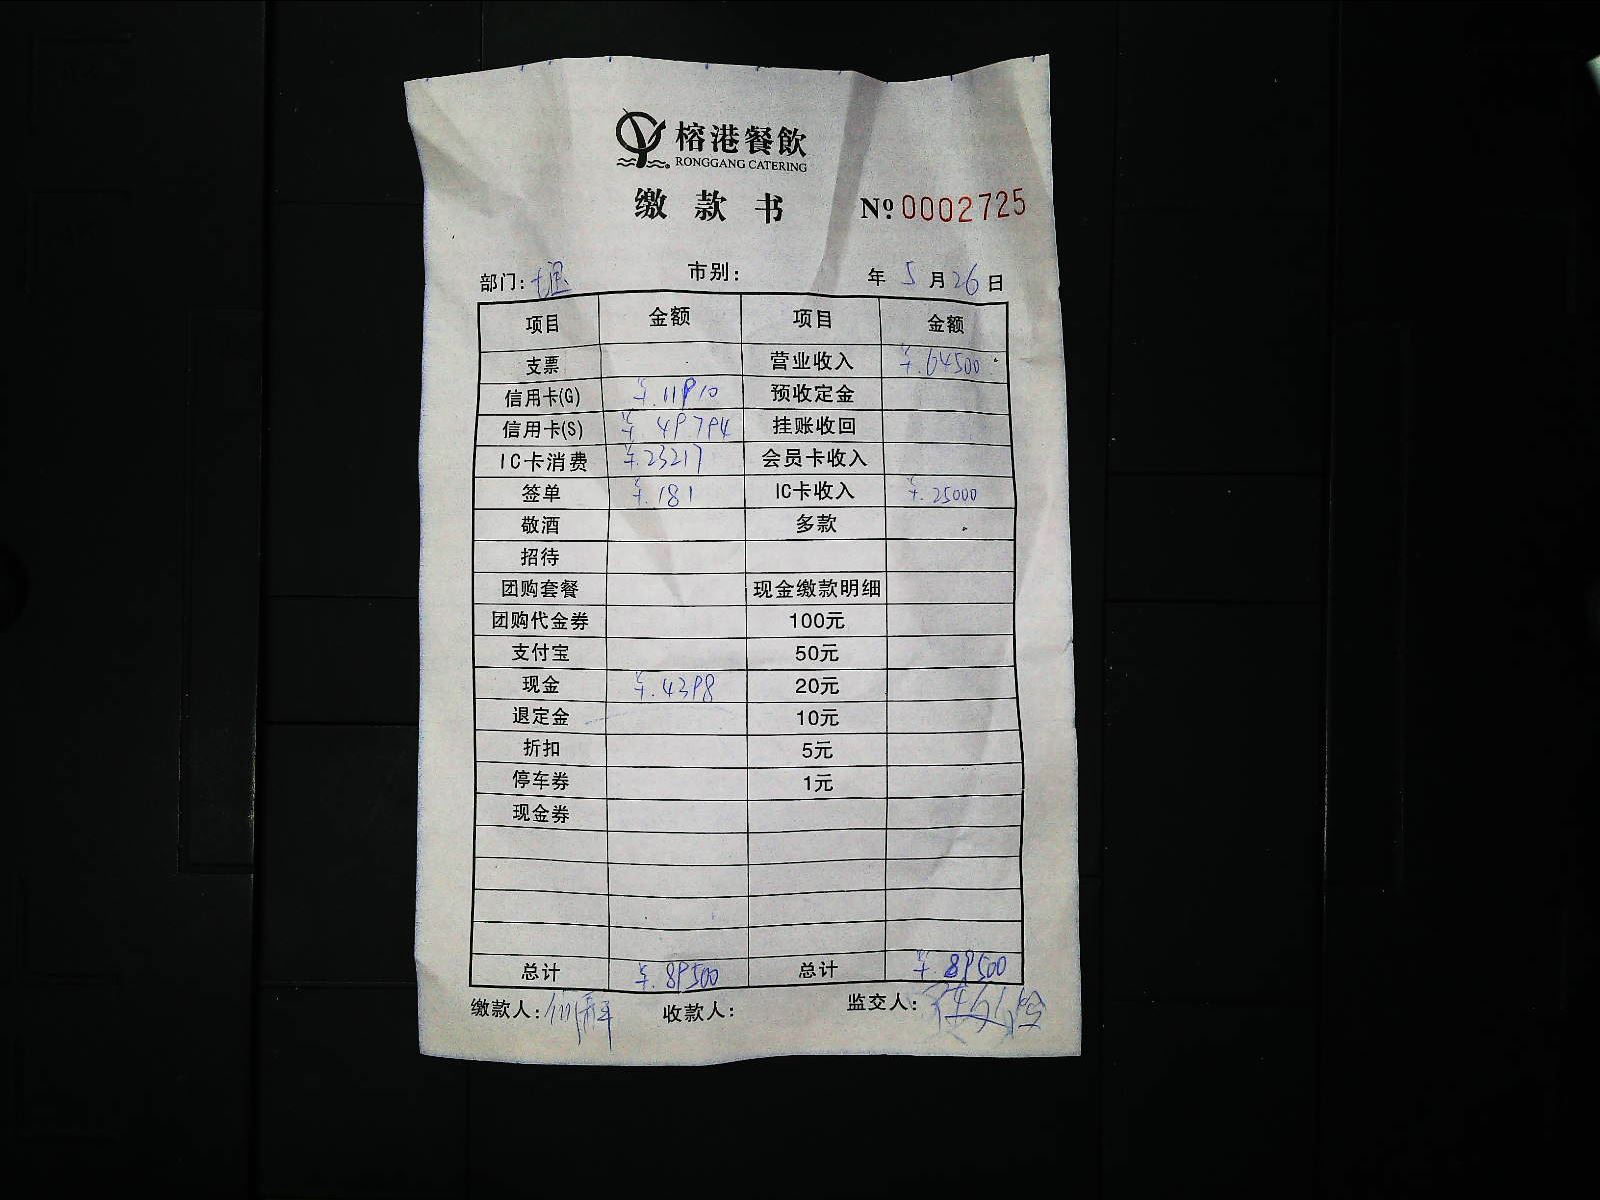 榕港餐飲
RONGGANG CATERING
缴款书 № 0002725
部门: 市别: 年 5 月 26 日
项目 金额 项目 金额
支票 营业收入 ¥.64500
信用卡(G) ¥.11910 预收定金
信用卡(S) ¥ 49794 挂账收回
IC卡消费 ¥.23217 会员卡收入
签单 ¥.181 IC卡收入 ¥.25000
敬酒 多款
招待
团购套餐 现金缴款明细
团购代金券 100元
支付宝 50元
现金 ¥.4398 20元
退定金 10元
折扣 5元
停车券 1元
现金券
总计 ¥.89500 总计 ¥.89500
缴款人: 收款人: 监交人: